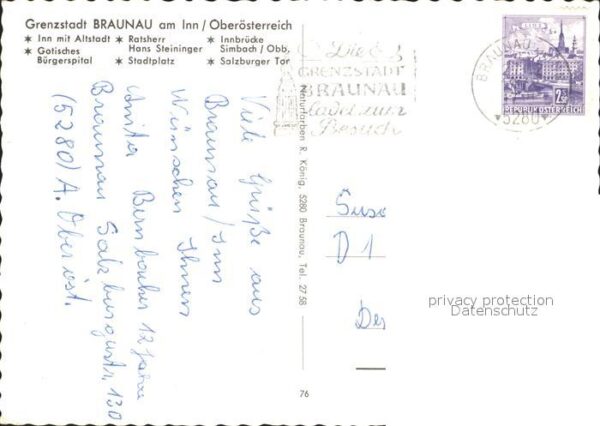 Grenzstadt BRAUNAU am Inn/Oberösterreich
✶ Inn mit Altstadt ✶ Ratsherr Hans Steininger ✶ Innbrücke Simbach/Obb,
✶ Gotisches Bürgerspital ✶ Stadtplatz ✶ Salzburger Tor
Die
GRENZSTADT
BRAUNAU
ladet zum
Besuch
BRAUNAU
5280
2.50
REPUBLIK ÖSTERREICH
Viele Grüße aus
Braunau/Inn
Wünschen Ihnen
Anita Bernbacher 12 Jahre
Braunau Salzburgerstr. 130
(5280) A. Oberöst.
Naturfarben R. König, 5280 Braunau, Tel. 27 58
D 1
privacy protection
Datenschutz
76